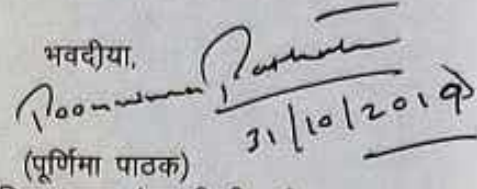 भवदीया,
Poornima Pathak
31/10/2019
(पूर्णिमा पाठक)